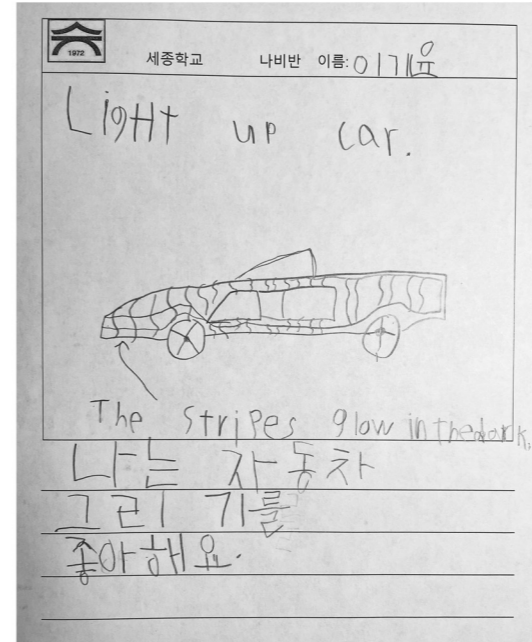 1972
세종학교 나비반 이름: 이기윤
Light up car.
The stripes glow in the dark.
나는 자동차
그리기를
좋아해요.